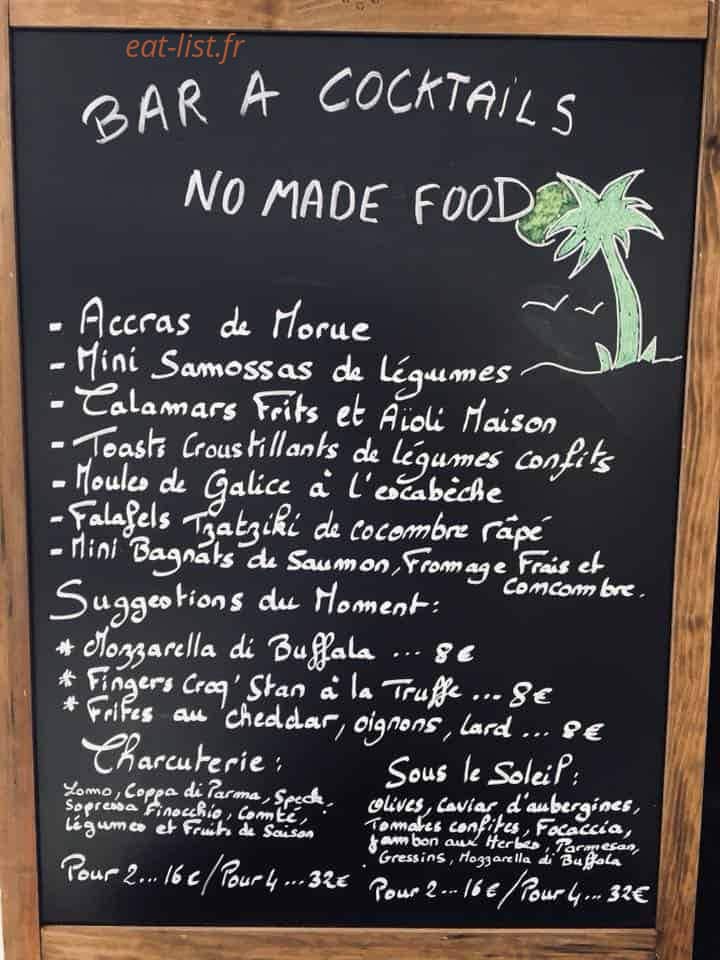 eat-list.fr
BAR A COCKTAILS
NO MADE FOOD
- Accras de Morue
- Mini Samossas de légumes
- Calamars Frits et Aïoli Maison
- Toasts Croustillants de légumes confits
- Moules de Galice à l'escabèche
- Falafels Tzatziki de cocombre râpé
- Mini Bagnats de Saumon, Fromage Frais et
Concombre.
Suggestions du Moment:
* Mozzarella di Buffala ... 8€
* Fingers Croq' Stan à la Truffe ... 8€
* Frites au cheddar, oignons, lard ... 8€
Charcuterie:
Lomo, Coppa di Parma, Speck,
Sopressa Finocchio, Comté,
légumes et Fruits de Saison
Pour 2... 16€/Pour 4 ... 32€
Sous le Soleil:
Olives, Caviar d'aubergines,
Tomates confites, Focaccia,
Jambon aux Herbes, Parmesan,
Gressins, Mozzarella di Buffala
Pour 2... 16€/Pour 4... 32€